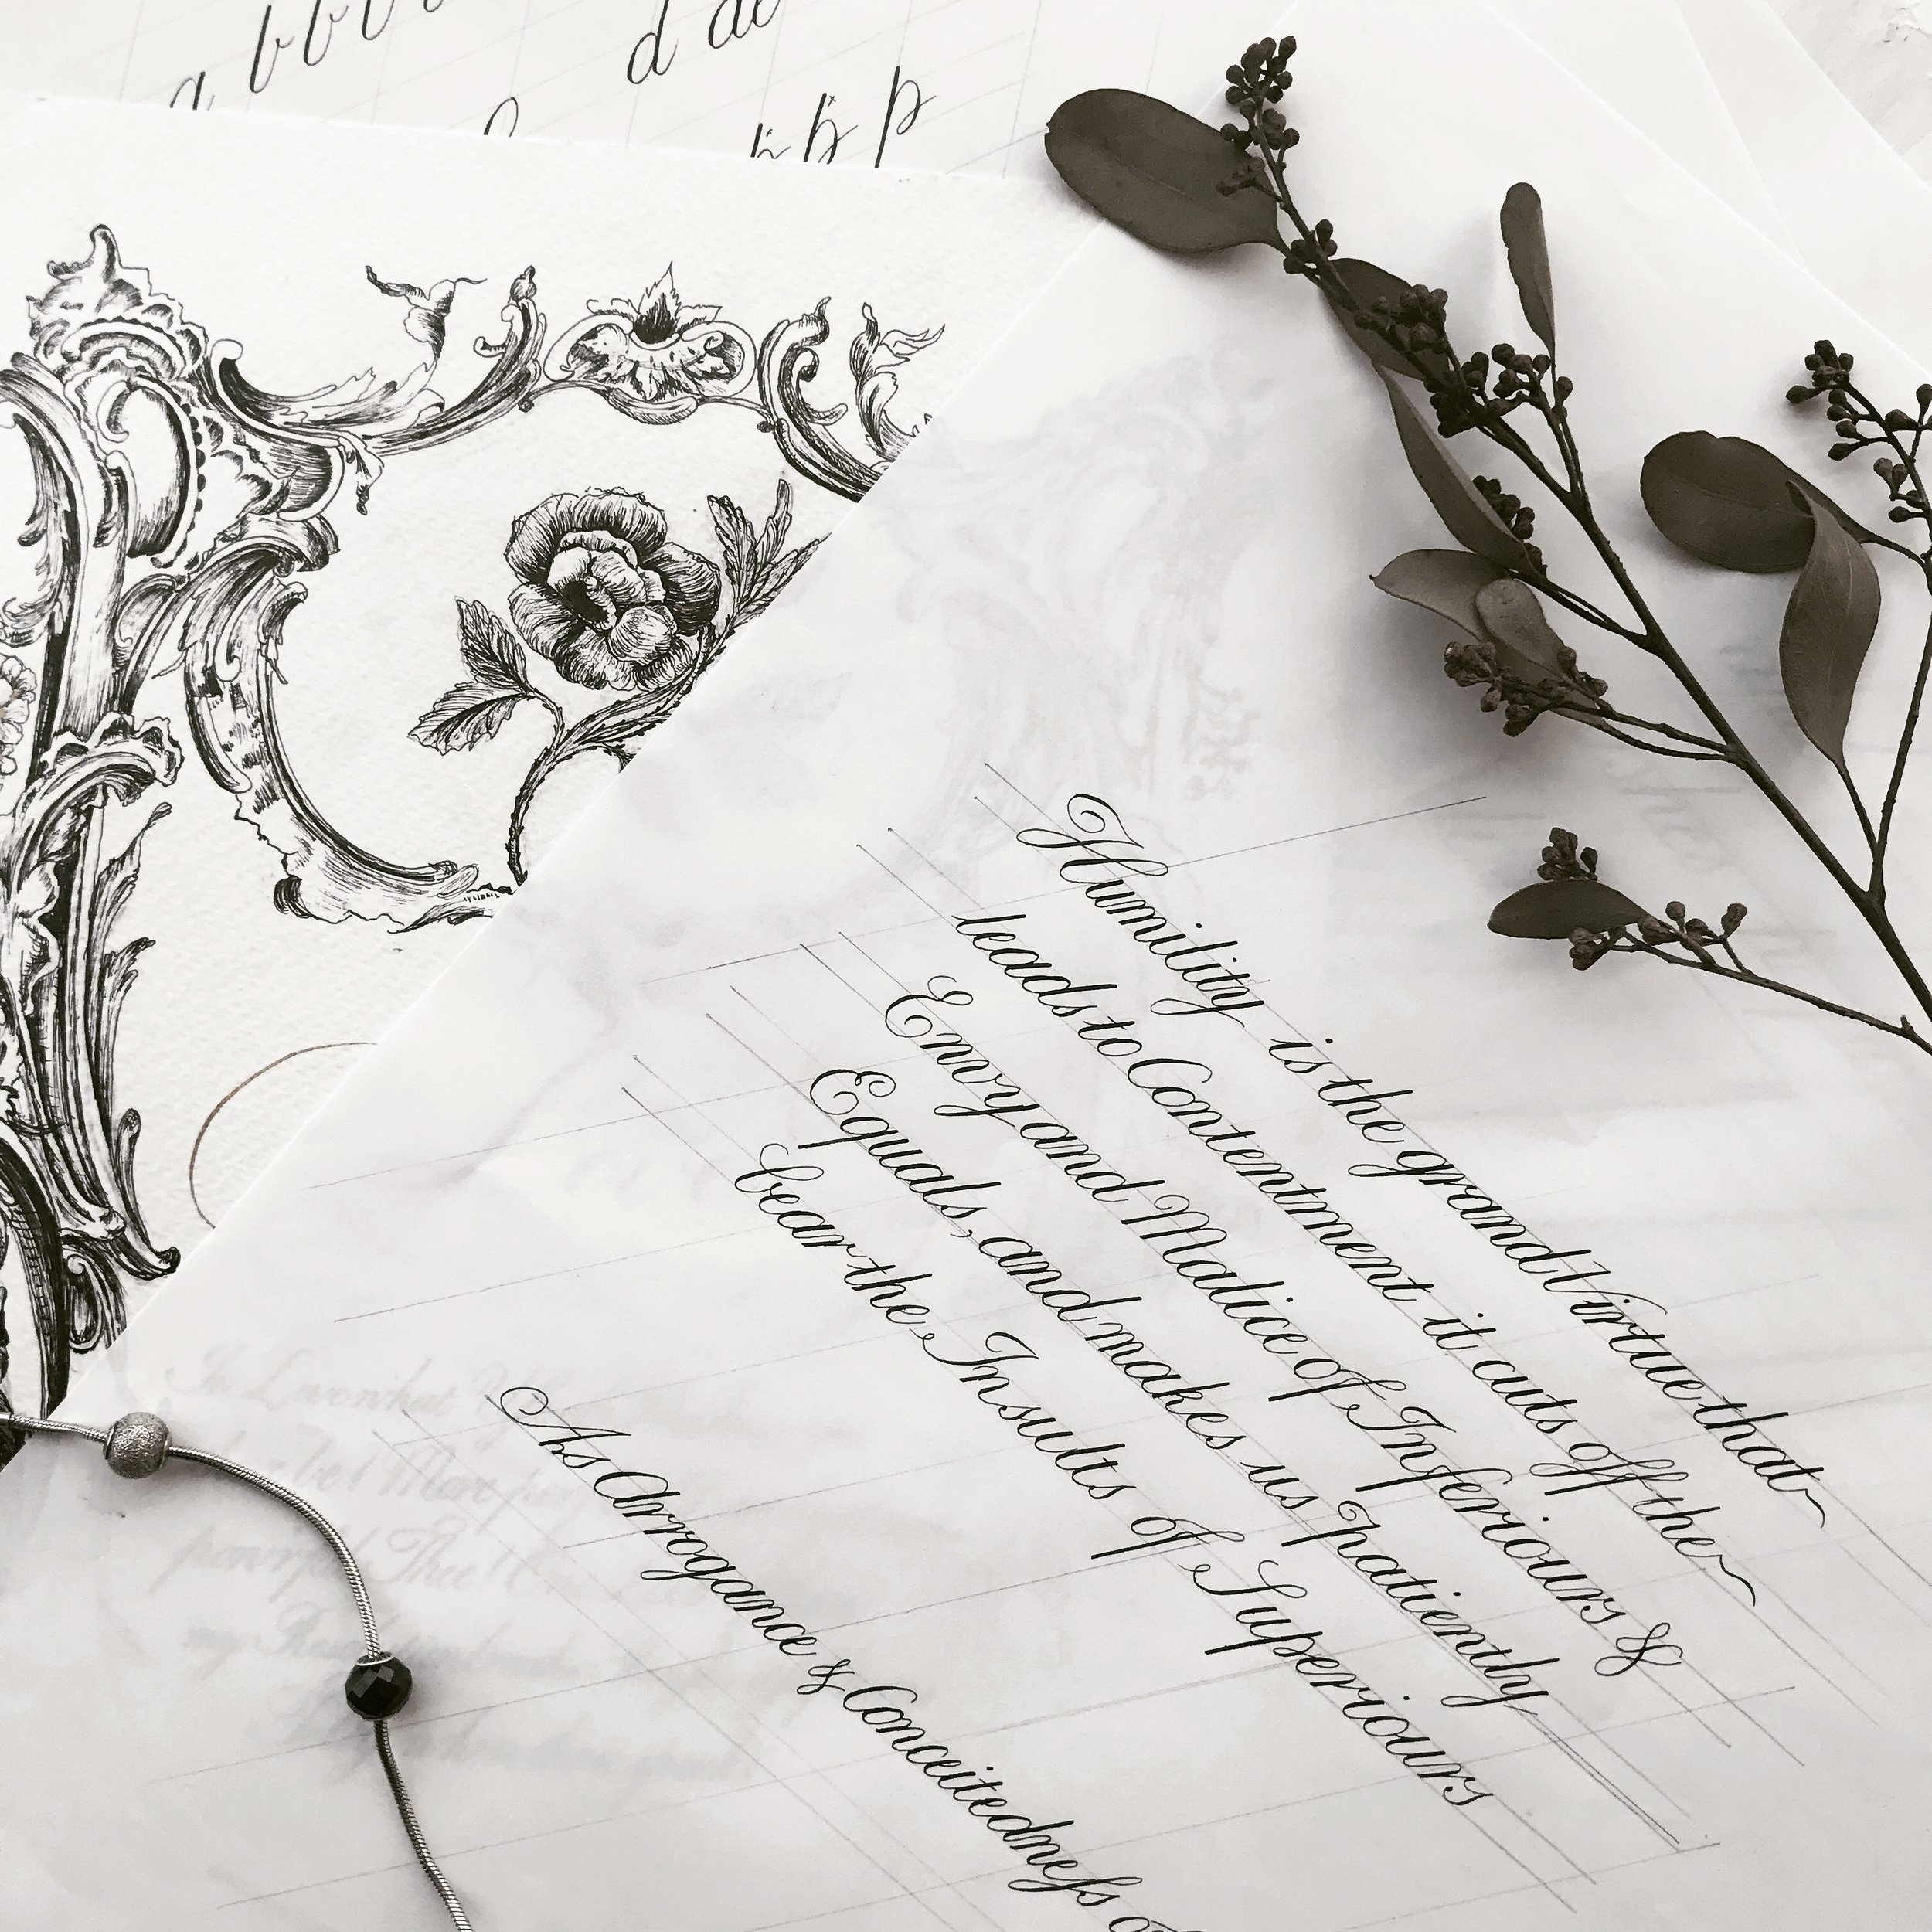 a b b b d
h h p
Humility is the grand Virtue that
leads to Contentment it cuts off the
Envy and Malice of Inferiours &
Equals, and makes us patiently
bear the Insults of Superiours
As Arrogance & Conceitedneſs